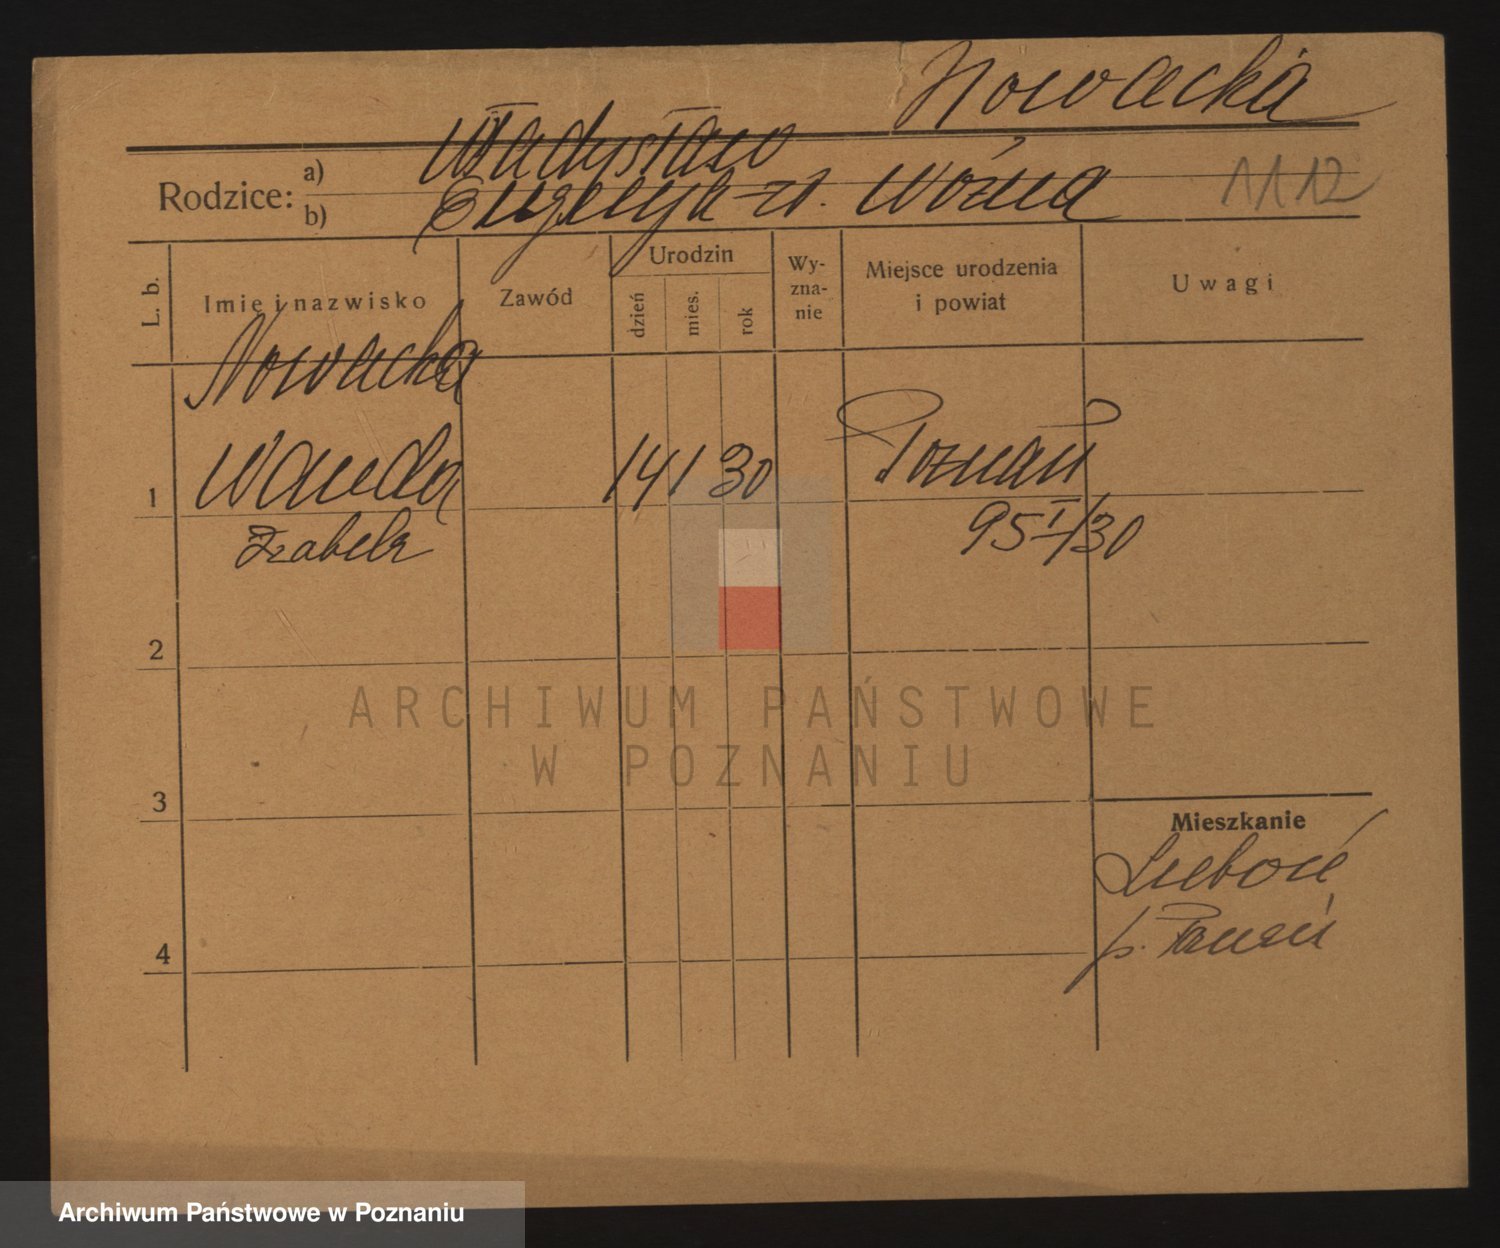 Nowacka
Rodzice: a) Władysław
b) z d. Woźna 1112
L. b. Imię i nazwisko Zawód Urodzin dzień mies. rok Wy-zna-nie Miejsce urodzenia i powiat Uwagi
Nowacka
1 Wanda 14 1 30 Poznań
Izabela 95 I/30
2
ARCHIWUM PAŃSTWOWE
W POZNANIU
3
Mieszkanie
Luboń
4 p. Poznań
Archiwum Państwowe w Poznaniu